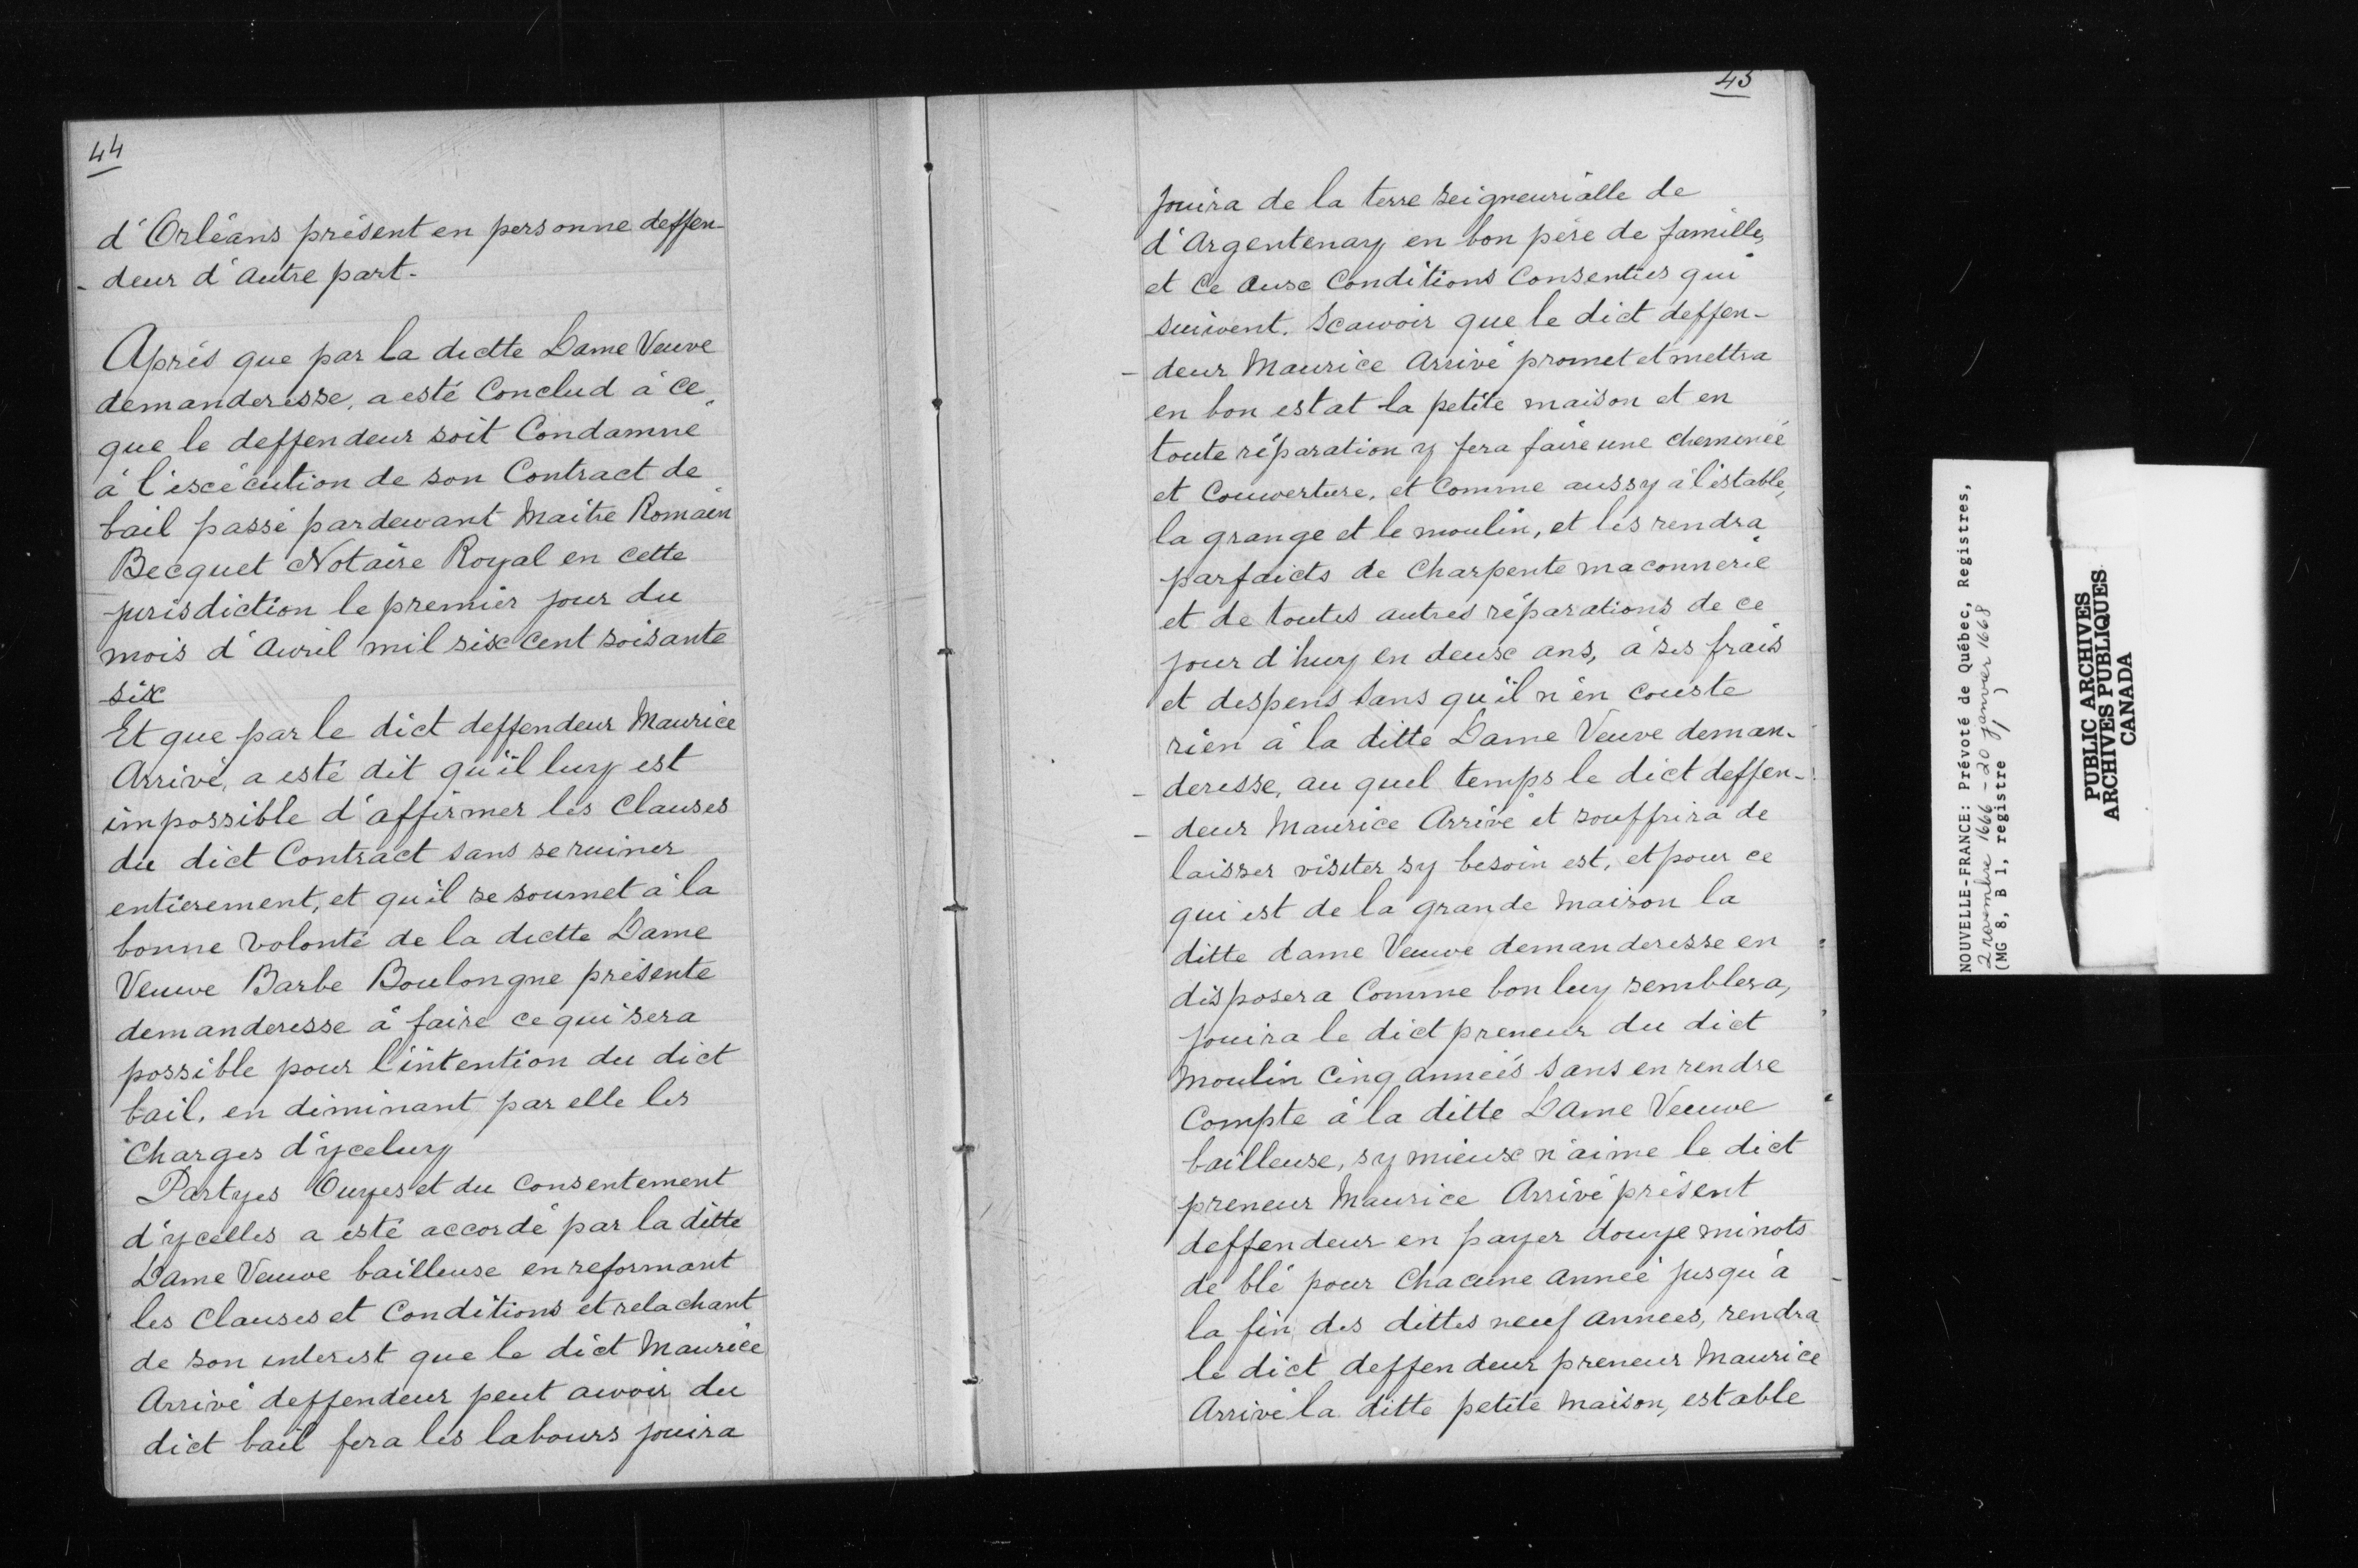 44
d'Orléans présent en personne deffen-
- deur d'autre part.
Après que par la dictte Dame Veuve
demanderesse, a esté Conclud à ce
que le deffendeur soit Condamné
à l'éxécution de son Contract de
bail passé pardevant Maitre Romain
Becquet Notaire Royal en cette
jurisdiction le premier jour du
mois d'Avril mil six cent soisante
six
Et que par le dict deffendeur Maurice
Arrivé, a esté dit qu'il luy est
impossible d'affirmer les Clauses
du dict Contract sans se ruiner
entierement, et qu'il se soumet à la
bonne volonté de la dictte Dame
Veuve Barbe Boulongne présente
demanderesse à faire ce qui sera
possible pour l'intention du dict
bail, en diminant par elle les
Charges d'yceluy
Partyes Ouyes et du Consentement
d'ycelles a esté accordé par la ditte
Dame Veuve bailleuse en reformant
les Clauses et Conditions et relachant
de son interest que le dict Maurice
Arrivé deffendeur peut avoir du
dict bail fera les labours jouira
45
jouira de la terre seigneurialle de
d'Argentenay en bon père de famille,
et Ce aux Conditions Consenties qui
suivent. Scavoir que le dict deffen-
- deur Maurice Arrivé promet et mettra
en bon estat la petite maison et en
toute réparation y fera faire une cheminée
et Couverture, et Comme aussy à l'estable,
la grange et le moulin, et les rendra
parfaicts de Charpente maconnerie
et de toutes autres réparations de ce
jour d'huy en deux ans, à ses frais
et despens sans qu'il n'en couste
rien à la ditte Dame Veuve deman-
- deresse, au quel temps le dict deffen-
- deur Maurice Arrivé et souffrira de
laisser visiter sy besoin est, et pour ce
qui est de la grande Maison la
ditte dame Veuve demanderesse en
disposera Comme bon luy semblera,
jouira le dict preneur du dict
Moulin Cinq années sans en rendre
Compte à la ditte Dame Veuve
bailleuse, sy mieux n'aime le dict
preneur Maurice Arrivé présent
deffendeur en payer douze minots
de blé pour Chacune année jusqu'à
la fin des dittes neuf années, rendra
le dict deffendeur preneur Maurice
Arrivé la ditte petite Maison, estable
NOUVELLE-FRANCE: Prévoté de Québec, Registres,
2 novembre 1666 - 20 janvier 1668
(MG 8, B 1, registre 1)
PUBLIC ARCHIVES
ARCHIVES PUBLIQUES
CANADA